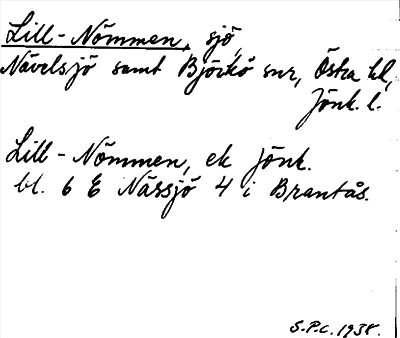 Lill-Nömmen, sjö,
Nävelsjö samt Björkö snr, Östra hd,
Jönk. l.
Lill-Nömmen, ek Jönk.
bl. 6 E Nässjö 4 i Brantås.
S.P.C. 1938.